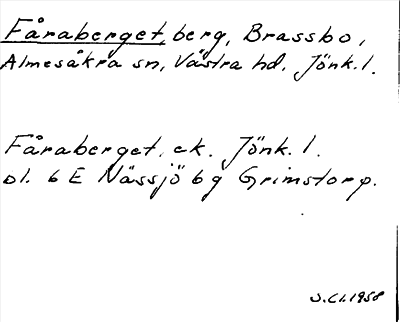 Fåraberget, berg, Brassbo,
Almesåkra sn, Västra hd, Jönk. l.
Fåraberget. ek. Jönk. l.
bl. 6 E Nässjö 6 g Grimstorp.
J. Cl. 1958